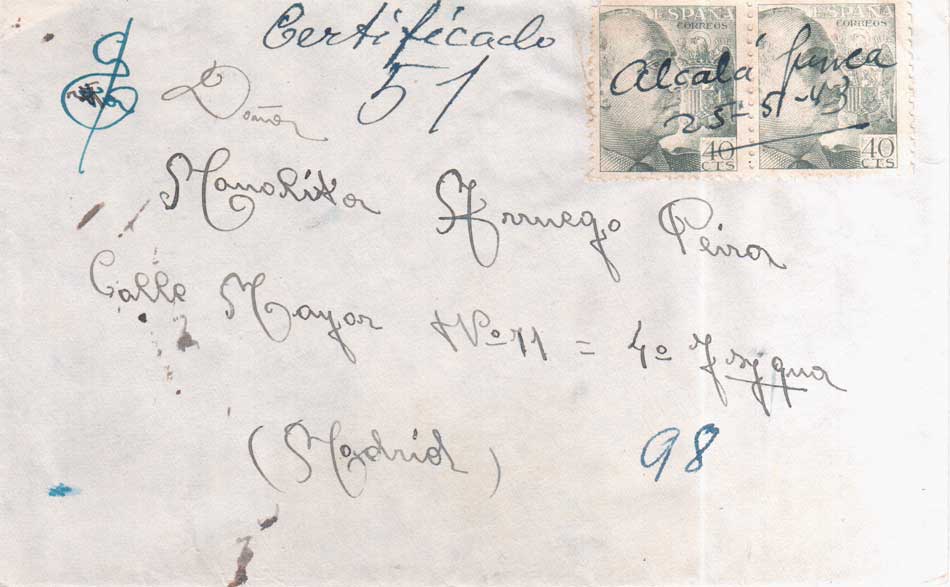 Certificado
51
ESPAÑA
CORREOS
40
CTS
ESPAÑA
CORREOS
40
CTS
Alcalá Junca
25-5-43
Doña
Manolita Arruego Peira
Calle Mayor Nº 11 = 4º Izqua
(Madrid)
98